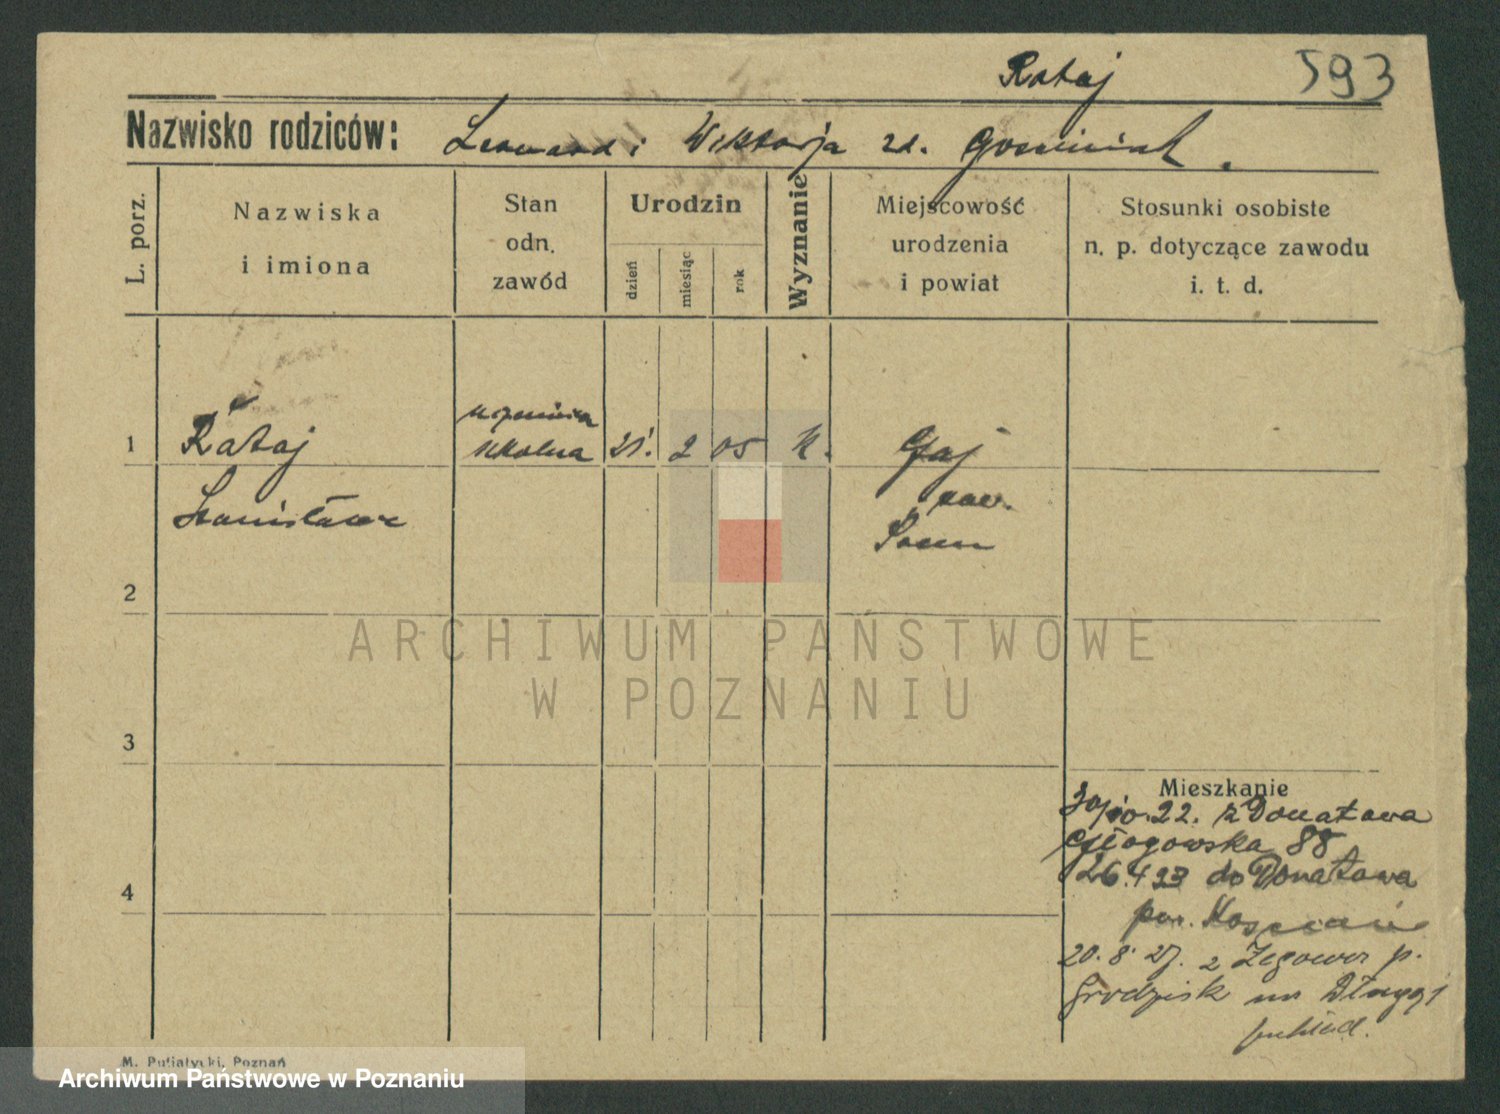 Rataj 593
Nazwisko rodziców: Leonard i Wiktorja zd.
L. porz.
Nazwiska
i imiona
Stan
odn.
zawód
Urodzin
dzień
miesiąc
rok
Wyznanie
Miejscowość
urodzenia
i powiat
Stosunki osobiste
n. p. dotyczące zawodu
i. t. d.
1 Rataj uczenica
szkolna 21. 2 05 K. Gaj
Stanisława pow.
Śrem
2
3
4
Mieszkanie
30/10.22. z Donatowa
Głogowska 88
26.4 23 do Donatowa
pow. Kościan
20. 8. 27. z Zegowo p.
Grodzisk
M. Putiatycki, Poznań
ARCHIWUM PAŃSTWOWE
W POZNANIU
Archiwum Państwowe w Poznaniu